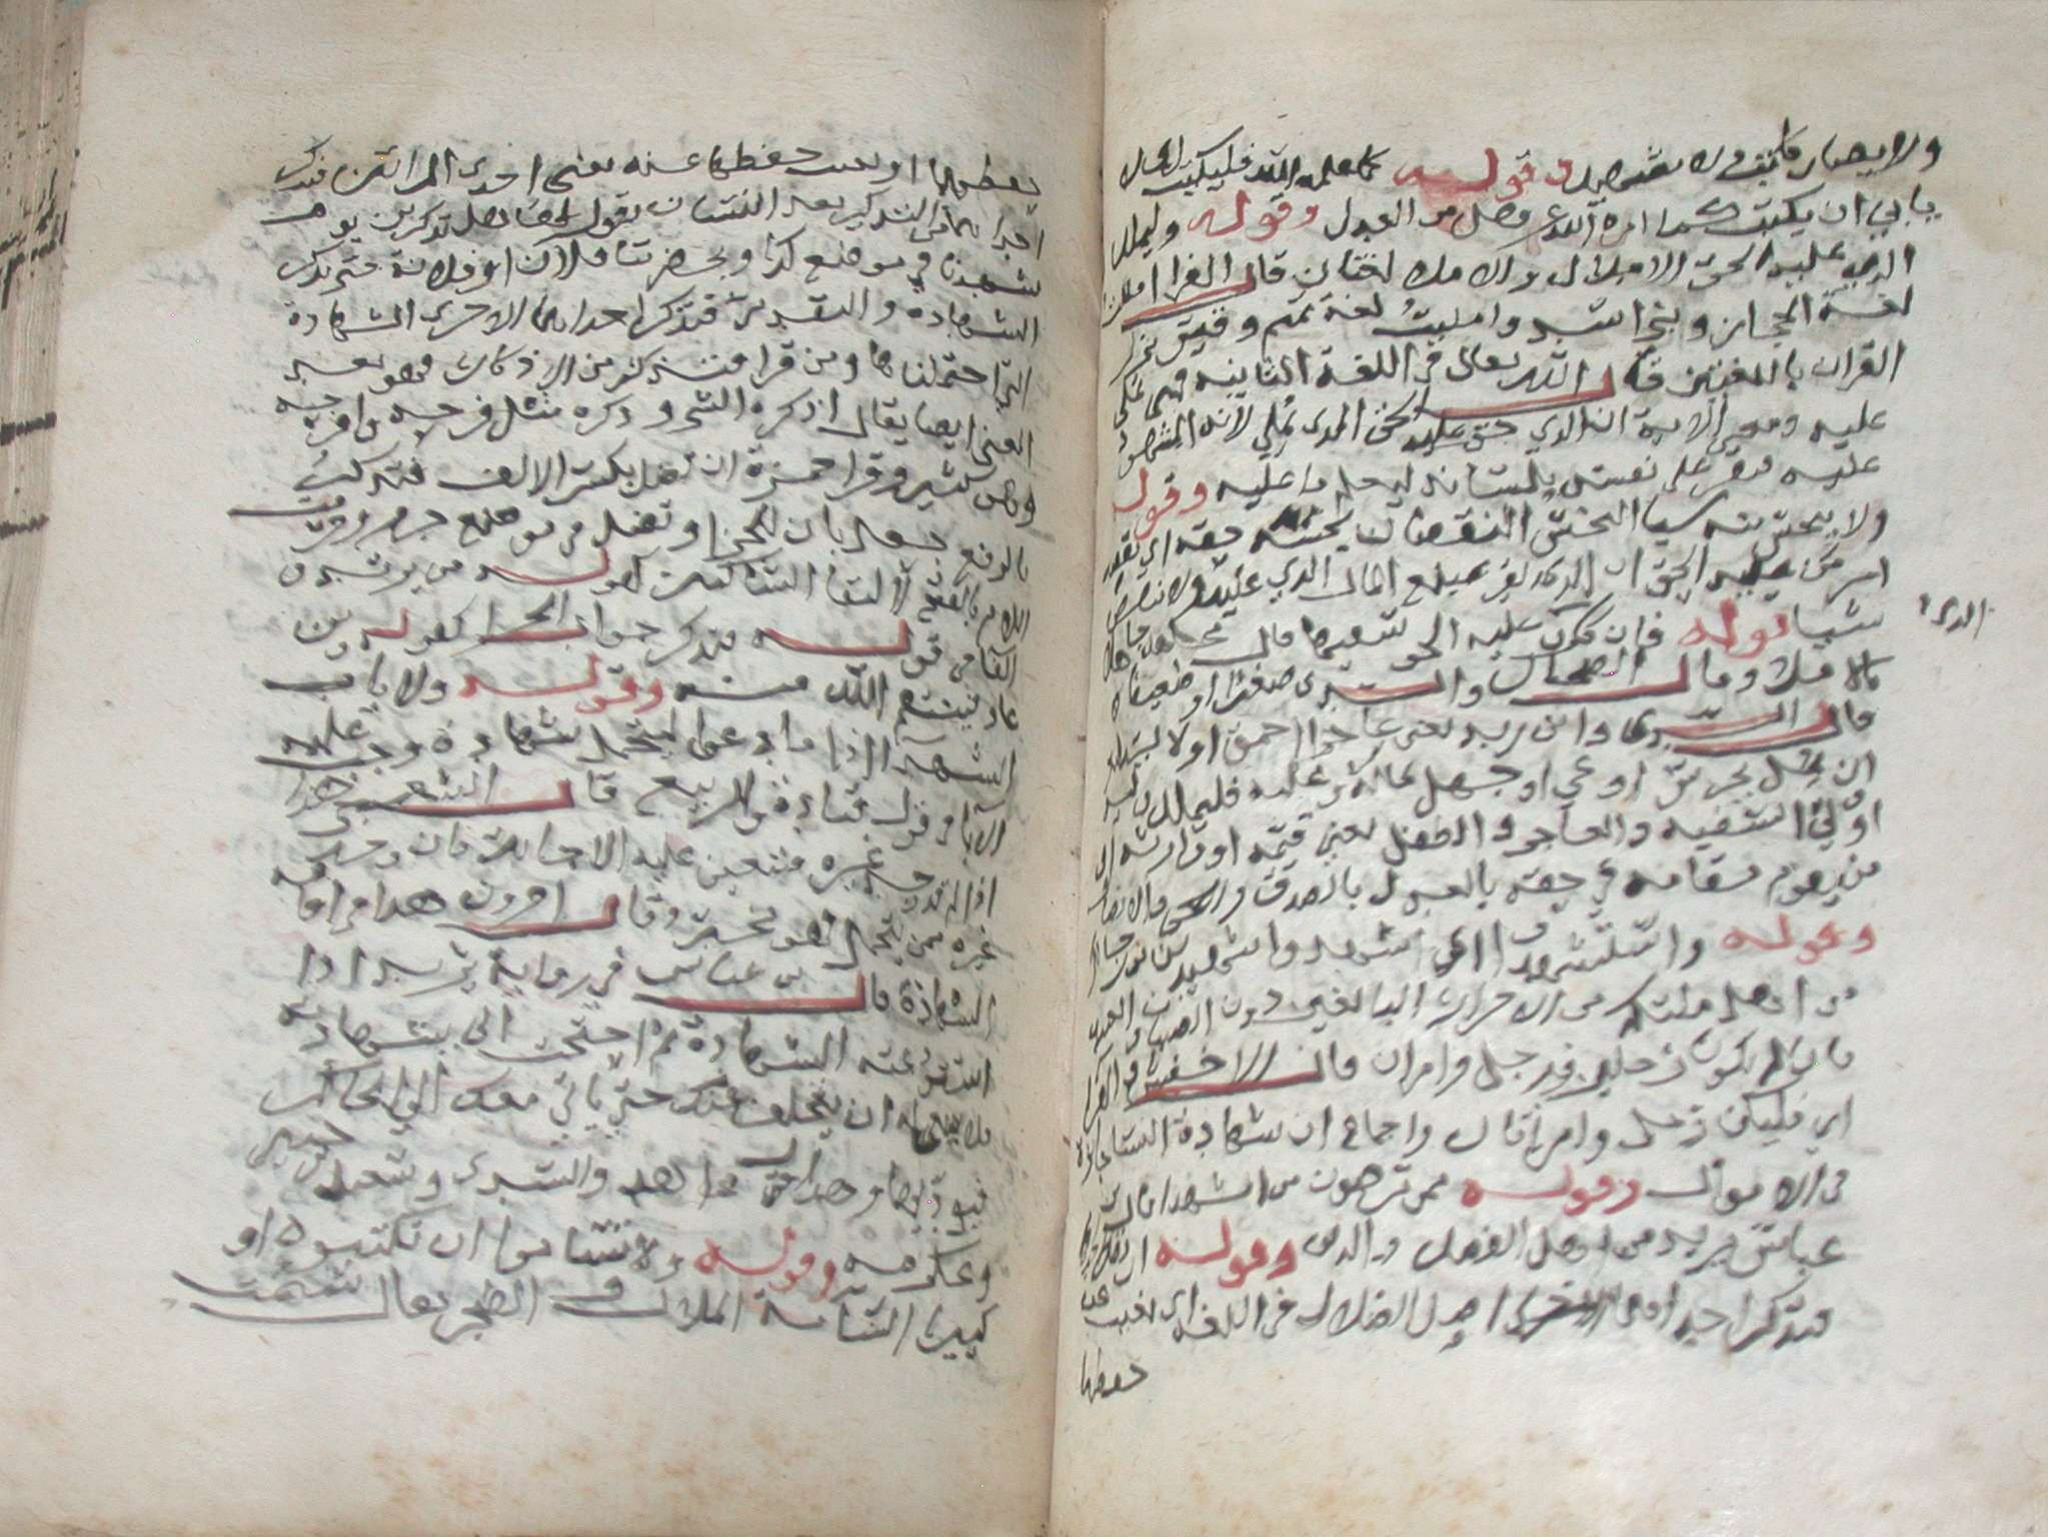 ولا يضار كاتب ولا شهيد وقوله كما علمه الله فليكتب اي لا
يابى ان يكتب كما امره الله عز وجل من العدل وقوله وليملل
الذي عليه الحق الاملال والاملا لغتان قال الفرا امللت
لغة الحجاز وبني اسد وامليت لغة تميم وقيس نزل
القران باللغتين قال الله تعالى في اللغة الثانية فهي تملى
عليه ومعنى الاية ان الذي عليه الحق المدين يملي لانه المشهود
عليه فيقر على نفسه بلسانه ليعلم ما عليه وقوله
ولا يبخس منه شيا البخس النقصان يخسه حقه اي نقصه
امر من عليه الحق ان يقر بمبلغ المال الذي عليه ولا ينقص
الذي
شيا قوله فان كان الذي عليه الحق سفيها قال مجاهد جاهلا
بالاملا وقال الضحاك والسدي صغيرا او ضعيفا
قال السدي وابن زيد يعني عاجزا احمق او لا يستطيع
ان يمل بخرس او عي او جهل بماله وعليه فليملل وليه
اي ولي السفيه والعاجز والطفل يعني قيمه او وارثه او
من يقوم مقامه في حقه بالعدل بالصدق والحق والانصاف
وقوله واستشهدوا اي اشهدوا شهيدين من رجالكم
من اهل ملتكم من الاحرار البالغين دون الصبيان والعبيد
فان لم يكونا رجلين فرجل وامراتان قال الاخفش والفرا
اي فليكن رجل وامراتان واجماع ان شهادة النسا جائزة
في الاموال وقوله ممن ترضون من الشهدا قال ابن
عباس يريد من اهل الفضل والدين وقوله ان تضل احداهما
فتذكر احداهما الاخرى اصل الضلال في اللغة اي يغيب عن
حفظها
حفظها او يغيب حفظها عنه يعني احدى المراتين فتذكر
احداهما التذكير بعد النسيان يقول لها هل تذكرين يوم
شهدنا في موضع كذا وبحضرتنا فلان او فلانة حتى تذكر
الشهادة والتقدير فتذكر احداهما الاخرى الشهادة
التي احتملناها ومن قرا فتذكر من الاذكار فهو بهذا
المعنى ايضا يقال اذكره الشي وذكره مثل فرحه وافرحه
وهو كثير وقرا حمزة ان تضل بكسر الالف فتذكر
بالرفع جعل ان للجزا وتضل في موضع جزم وحركت
اللام بالفتح لالتقا الساكنين كقوله من يرتد
الفا في قوله فتذكر جواب الجزا كقوله ومن
عاد فينتقم الله منه وقوله ولا ياب
الشهدا اذا ما دعوا لتحمل شهادة وجب عليهم
الاجابة في قول قتادة والربيع قال الشعبي هذا
اذا لم يوجد غيره فتعين عليه الاجابة فان وجد
غيره ممن يتحمل فهو مخير وقال اخرون هذا في اقامة
الشهادة قال ابن عباس في رواية يريد اذا
استودعته الشهادة ثم احتجت الى شهادته
فلا ينبغي له ان يتخلف عنك حتى ياتي معك الى الحاكم
فيوديها وهذا قول مجاهد والسدي وسعيد بن جبير
وعكرمه وقوله ولا تساموا ان تكتبوه صغيرا او
كبيرا السامة الملال والضجر يقال سئمت